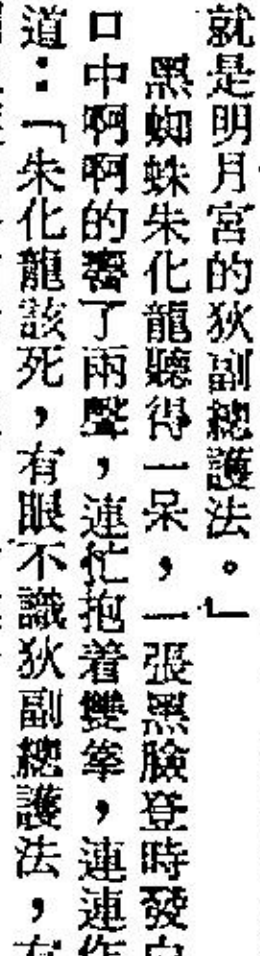 就是明月宮的狄副總護法。」
黑蜘蛛朱化龍聽得一呆，一張黑臉登時發白
口中啊啊的響了兩聲，連忙抱着雙拳，連連作
道：「朱化龍該死，有眼不識狄副總護法，有